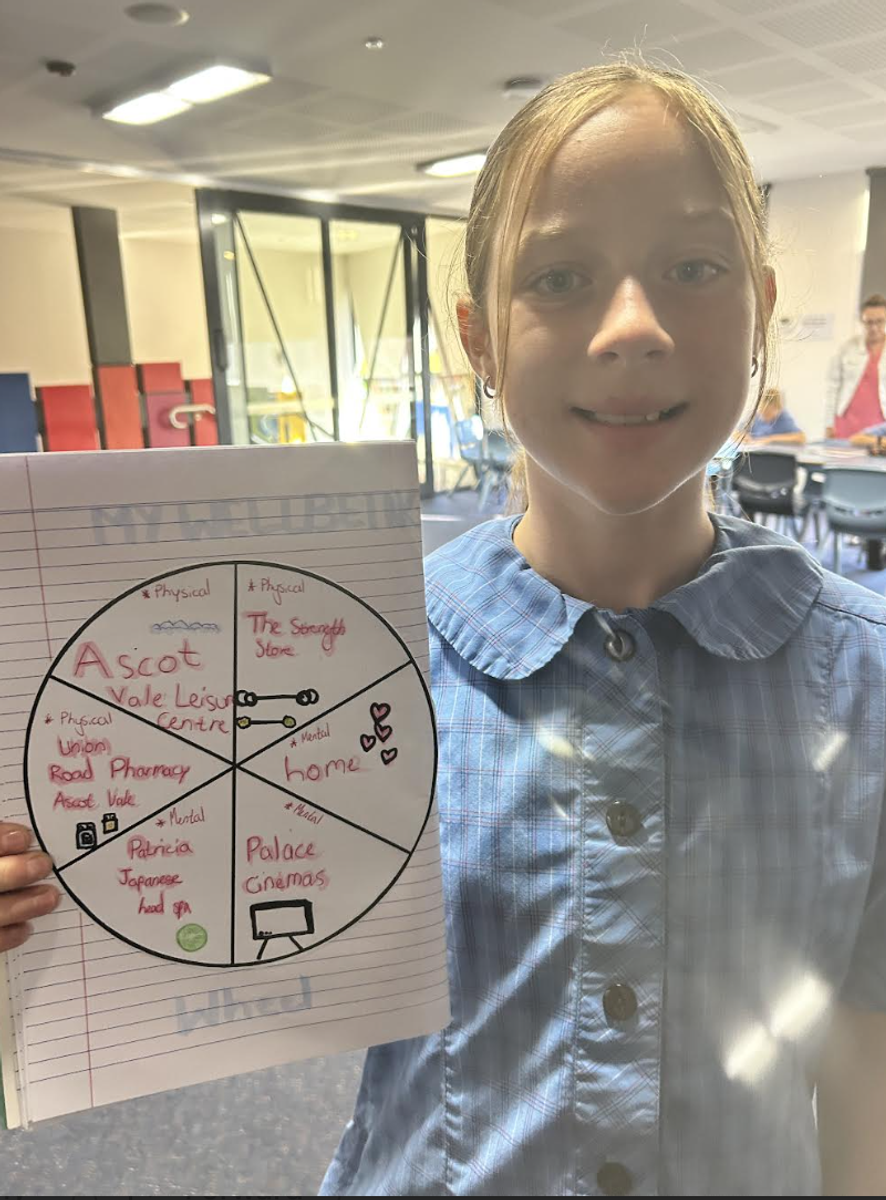 MY WELLBEING
* Physical
Ascot
Vale Leisure
Centre
* Physical
The Strength
Store
* Mental
home
* Mental
Palace
cinemas
* Mental
Patricia
Japanese
head spa
* Physical
Union
Road Pharmacy
Ascot Vale
Wheel